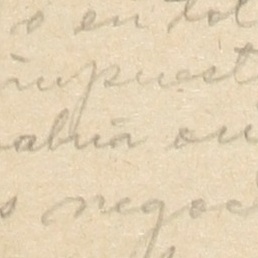 o en tol
impuest
abria on
s negoc